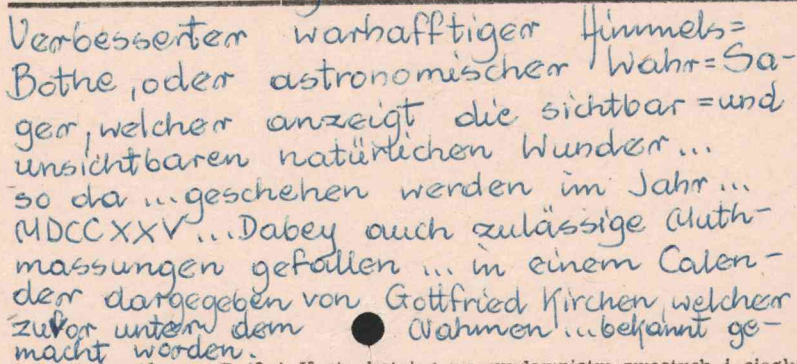 Verbesserter warhafftiger Himmels=
Bothe, oder astronomischer Wahr=Sa-
ger, welcher anzeigt die sichtbar=und
unsichtbaren natürlichen Wunder...
so da ...geschehen werden im Jahr...
MDCCXXV...Dabey auch zulässige Muth-
massungen gefallen ... in einem Calen-
der dargegeben von Gottfried Kirchen, welcher
zuvor unter dem Nahmen ...bekannt ge-
macht worden